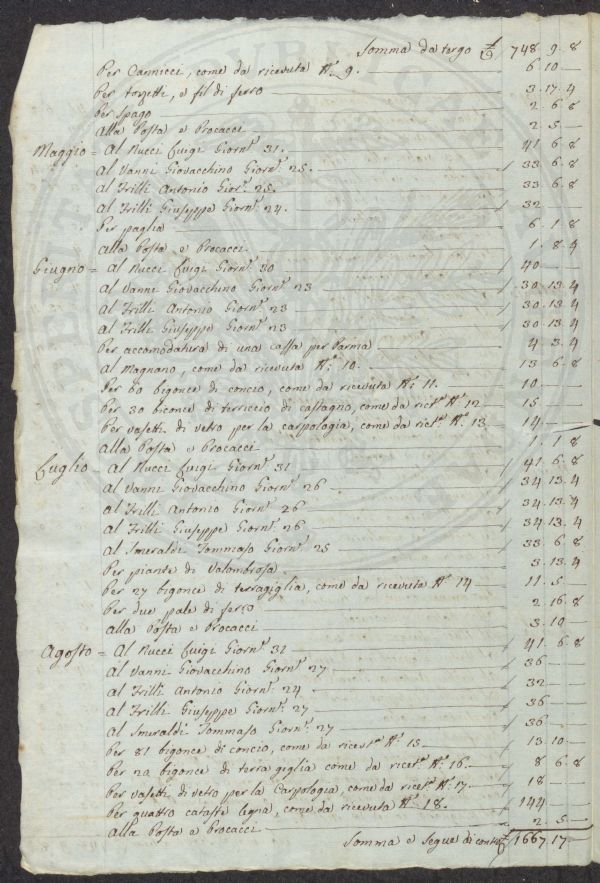 Somma da tergo £ 748. 9. 8
Per Cannicci, come da ricevuta N.º 9. 6. 10 —
Per torzetti, e fil di ferro 3. 17. 4
Per Spago 2. 6. 8
Alla Posta e Procacci 2. 5 —
Maggio = Al Nucci Luigi Giorn.ᵗ 31. 41. 6. 8
Al Vanni Giovacchino Giorn.ᵗ 25. 33. 6. 8
Al Frilli Antonio Gior.ᵗ 25. 33. 6. 8
Al Frilli Giuseppe Giorn.ᵗ 24. 32 —
Per paglia 6. 1. 8
Alla Posta e Procacci 1. 8. 4
Giugno = Al Nucci Luigi Giorn.ᵗ 30 40 —
Al Vanni Giovacchino Giorn.ᵗ 23 30. 13. 4
Al Frilli Antonio Giorn.ᵗ 23 30. 13. 4
Al Frilli Giuseppe Giorn.ᵗ 23 30. 13. 4
Per accomodatura di una cassa per Parma 4. 3. 4
Al Magnano, come da ricevuta N.º 10. 13. 6. 8
Per 60 bigonce di concio, come da ricevuta N.º 11. 10 —
Per 30 biconce di terriccio di castagno, come da ricet.ᵃ N.º 12 15 —
Per vasetti di vetro per la carpologia, come da ricet.ᵃ N.º 13 14 —
Alla Posta e Procacci 1. 1. 8
Luglio = Al Nucci Luigi Giorn.ᵗ 31 41. 6. 8
Al Vanni Giovacchino Giorn.ᵗ 26 34. 13. 4
Al Frilli Antonio Giorn.ᵗ 26 34. 13. 4
Al Frilli Giuseppe Giorn.ᵗ 26 34. 13. 4
Al Smeraldi Tommaso Giorn.ᵗ 25 33. 6. 8
Per piante di Valombrosa 3. 13. 4
Per 27 bigonce di terragiglia, come da ricevuta N.º 14 11. 5 —
Per due pale di ferro 2. 16. 8
Alla Posta e Procacci 3. 10 —
Agosto = Al Nucci Luigi Giorn.ᵗ 31 41. 6. 8
Al Vanni Giovacchino Giorn.ᵗ 27 36 —
Al Frilli Antonio Giorn.ᵗ 24. 32 —
Al Frilli Giuseppe Giorn.ᵗ 27 36 —
Al Smeraldi Tommaso Giorn.ᵗ 27 36 —
Per 81 bigonce di concio, come da ricevt.ᵃ N.º 15 13. 10 —
Per 20 bigonce di terra giglia come da ricet.ᵃ N.º 16. 8. 6. 8
Per vasetti di vetro per la Carpologia, come da ricet.ᵃ N.º 17. 18 —
Per quattro cataste legna, come da ricevuta N.º 18. 144 —
Alla Posta e Procacci 2. 5 —
Somma e Segue di contro £ 1667. 17 —